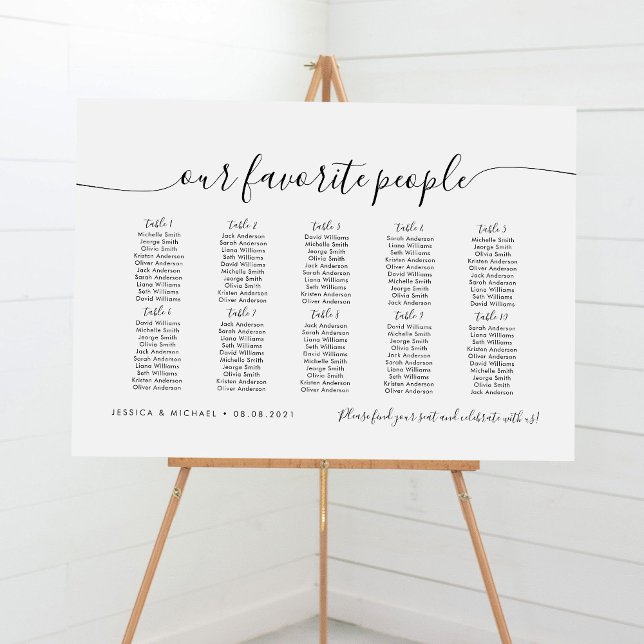 our favorite people
Table 1
Michelle Smith
Jeorge Smith
Olivia Smith
Kristen Anderson
Oliver Anderson
Jack Anderson
Sarah Anderson
Liana Williams
Seth Williams
David Williams
Table 2
Jack Anderson
Sarah Anderson
Liana Williams
Seth Williams
David Williams
Michelle Smith
Jeorge Smith
Olivia Smith
Kristen Anderson
Oliver Anderson
Table 3
David Williams
Michelle Smith
Jeorge Smith
Olivia Smith
Jack Anderson
Sarah Anderson
Liana Williams
Seth Williams
Kristen Anderson
Oliver Anderson
Table 4
Sarah Anderson
Liana Williams
Seth Williams
Kristen Anderson
Oliver Anderson
David Williams
Michelle Smith
Jeorge Smith
Olivia Smith
Jack Anderson
Table 5
Michelle Smith
Jeorge Smith
Olivia Smith
Kristen Anderson
Oliver Anderson
Jack Anderson
Sarah Anderson
Liana Williams
Seth Williams
David Williams
Table 6
David Williams
Michelle Smith
Jeorge Smith
Olivia Smith
Jack Anderson
Sarah Anderson
Liana Williams
Seth Williams
Kristen Anderson
Oliver Anderson
Table 7
Jack Anderson
Sarah Anderson
Liana Williams
Seth Williams
David Williams
Michelle Smith
Jeorge Smith
Olivia Smith
Kristen Anderson
Oliver Anderson
Table 8
Jack Anderson
Sarah Anderson
Liana Williams
Seth Williams
David Williams
Michelle Smith
Jeorge Smith
Olivia Smith
Kristen Anderson
Oliver Anderson
Table 9
David Williams
Michelle Smith
Jeorge Smith
Olivia Smith
Jack Anderson
Sarah Anderson
Liana Williams
Seth Williams
Kristen Anderson
Oliver Anderson
Table 10
Sarah Anderson
Liana Williams
Seth Williams
Kristen Anderson
Oliver Anderson
David Williams
Michelle Smith
Jeorge Smith
Olivia Smith
Jack Anderson
JESSICA & MICHAEL • 08.08.2021
Please find your seat and celebrate with us!